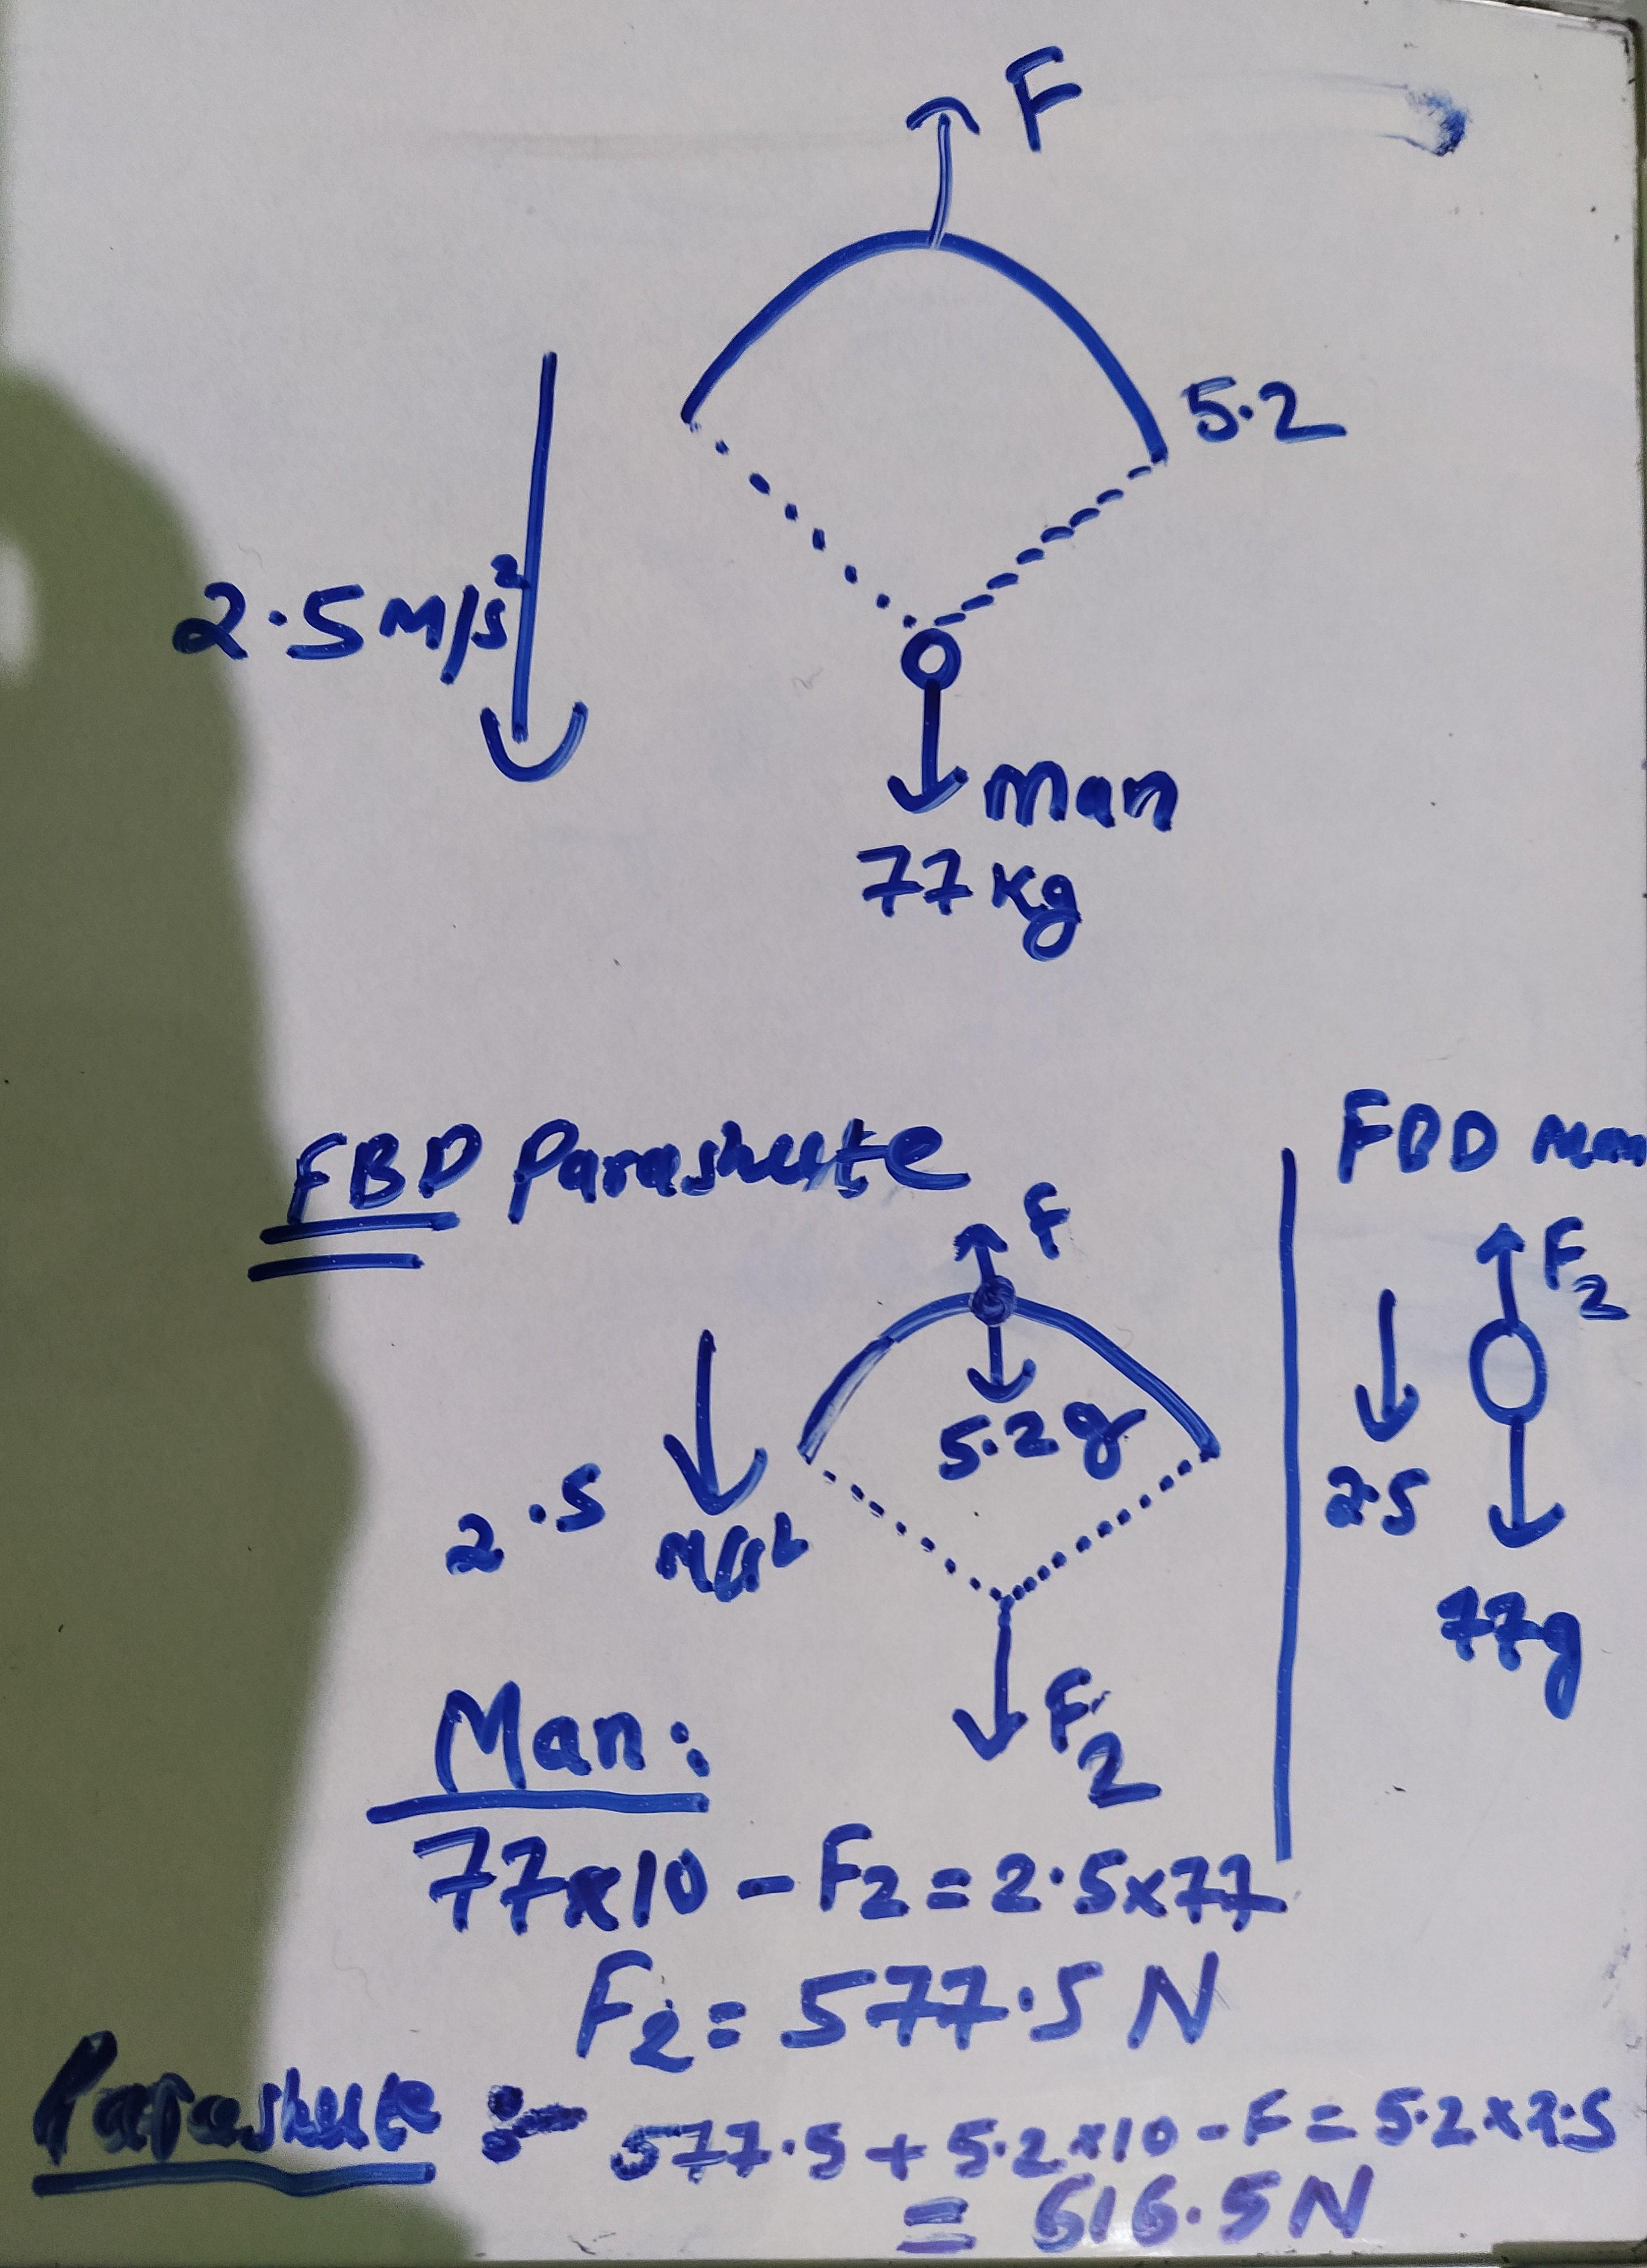 F
5.2
2.5 m/s²
Man
77 kg
FBD Parashute
F
5.2g
2.5 m/s²
F₂
FBD Man
F₂
2.5
77g
Man:
77x10 - F₂ = 2.5x77
F₂ = 577.5 N
Parashute :- 577.5 + 5.2x10 - F = 5.2x2.5
= 616.5N